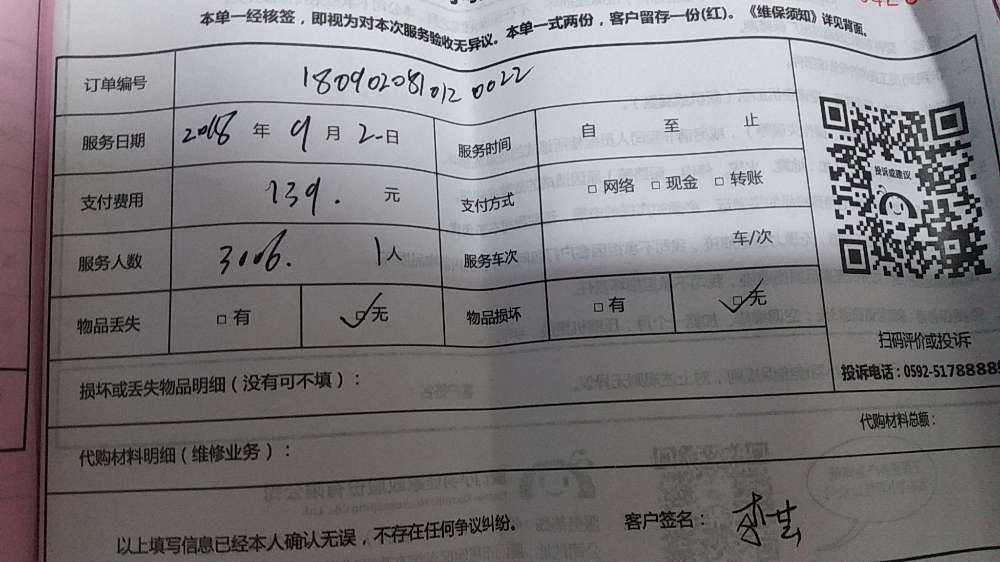 本单一经核签，即视为对本次服务验收无异议。本单一式两份，客户留存一份(红)。《维保须知》详见背面。
订单编号 180902081012 0022
服务日期 2018 年 9 月 2 日 服务时间 自 至 止
支付费用 139. 元 支付方式 □ 网络 □ 现金 □ 转账
服务人数 3106. 1人 服务车次 车/次
物品丢失 □ 有 ☑无 物品损坏 □ 有 ☑无
投诉或建议
扫码评价或投诉
投诉电话：0592-5178888
损坏或丢失物品明细（没有可不填）：
代购材料明细（维修业务）： 代购材料总额：
以上填写信息已经本人确认无误，不存在任何争议纠纷。 客户签名：